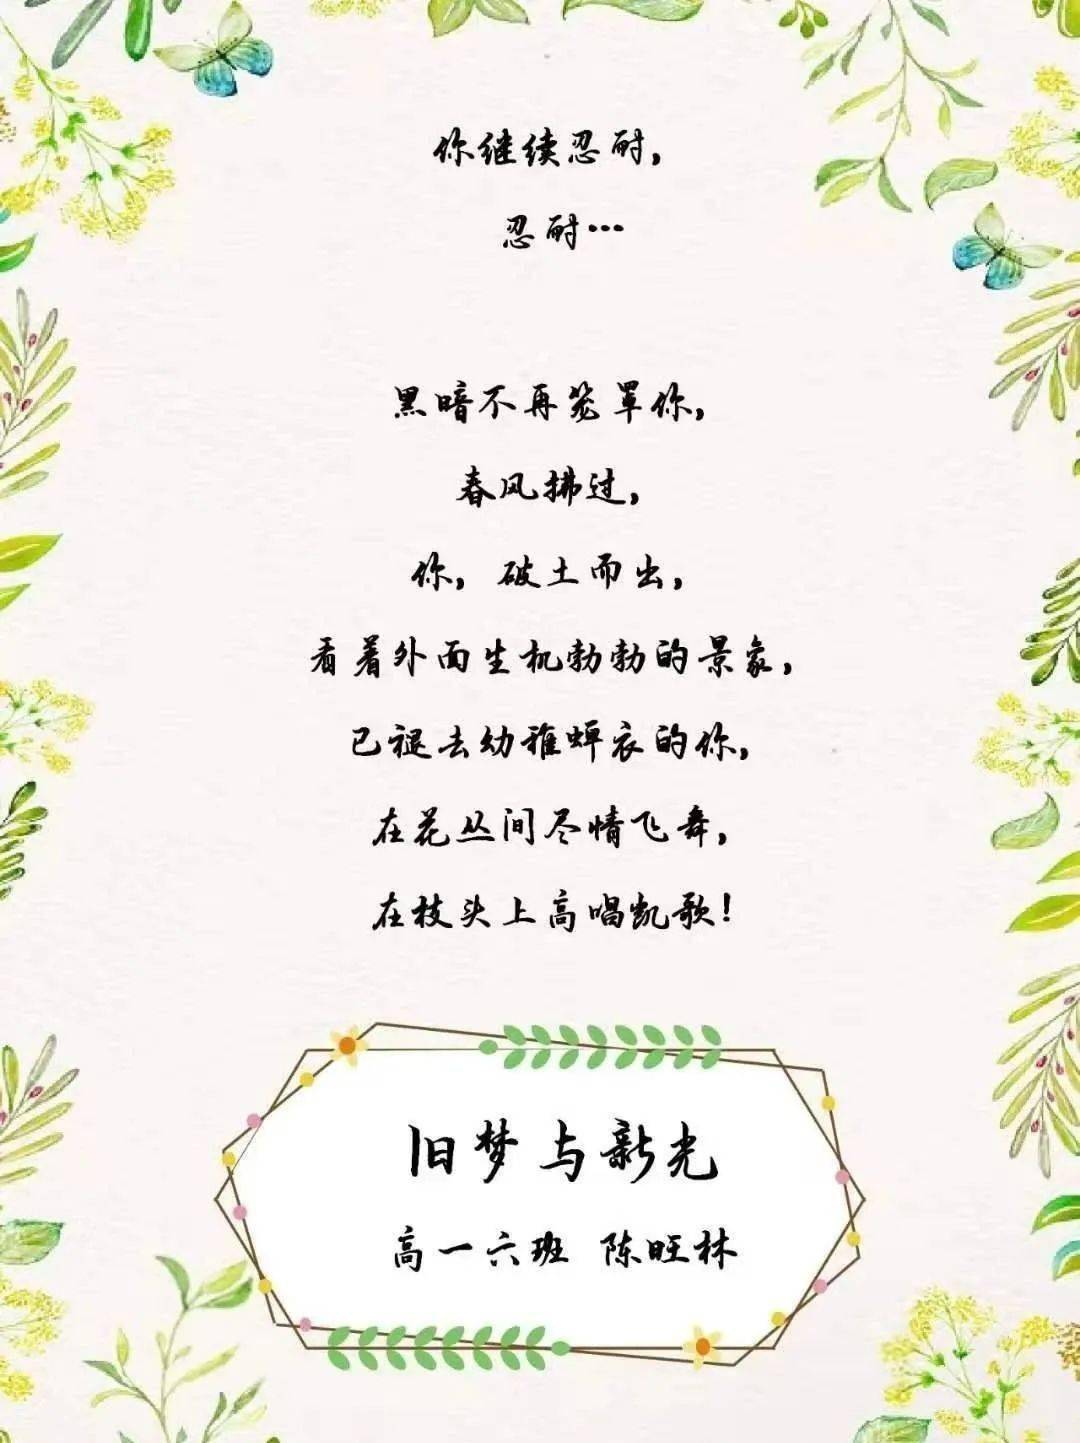 你继续忍耐，
忍耐…
黑暗不再笼罩你，
春风拂过，
你，破土而出，
看着外面生机勃勃的景象，
已褪去幼稚蝉衣的你，
在花丛间尽情飞舞，
在枝头上高唱凯歌！
旧梦与新光
高一六班 陈旺林